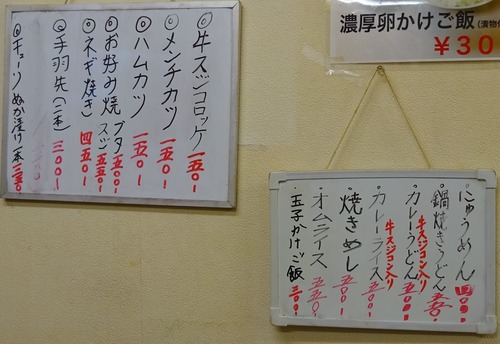 ◎牛スジコロッケ 一五〇ー
◎メンチカツ 一五〇ー
◎ハムカツ 一五〇ー
◎お好み焼 ブタ 五〇〇ー
スジ 五五〇ー
◎ネギ焼き 四五〇ー
◎手羽先(二本) 三〇〇ー
◎キューリぬか漬け一本
濃厚卵かけご飯
¥30
・にゅうめん 四〇〇ー
・鍋焼きうどん 五五〇ー
・カレーうどん 牛スジコン入り 五〇〇ー
・カレーライス 牛スジコン入り 五〇〇ー
・焼きめし 五〇〇ー
・オムライス 五五〇ー
・玉子かけご飯 三〇〇ー